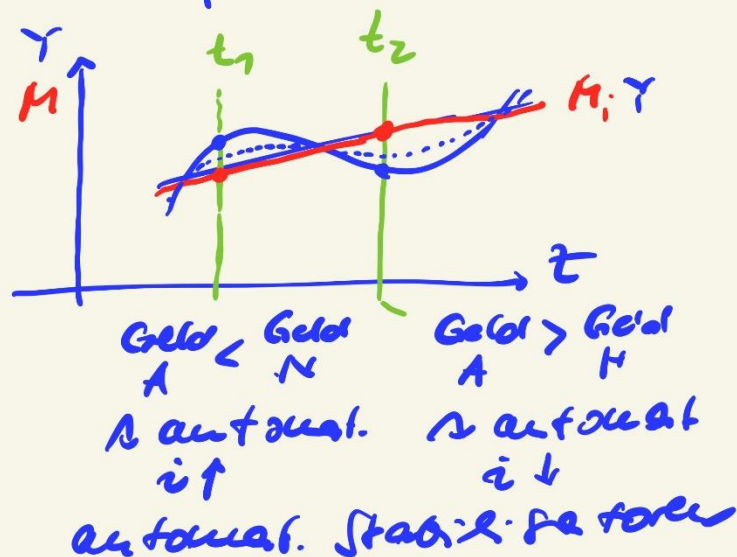 Y
t₁
t₂
M
M; Y
t
Geld < Geld
A N
Geld > Geld
A N
→ automat.
i ↑
→ automat
i ↓
automat. Stabilisatoren